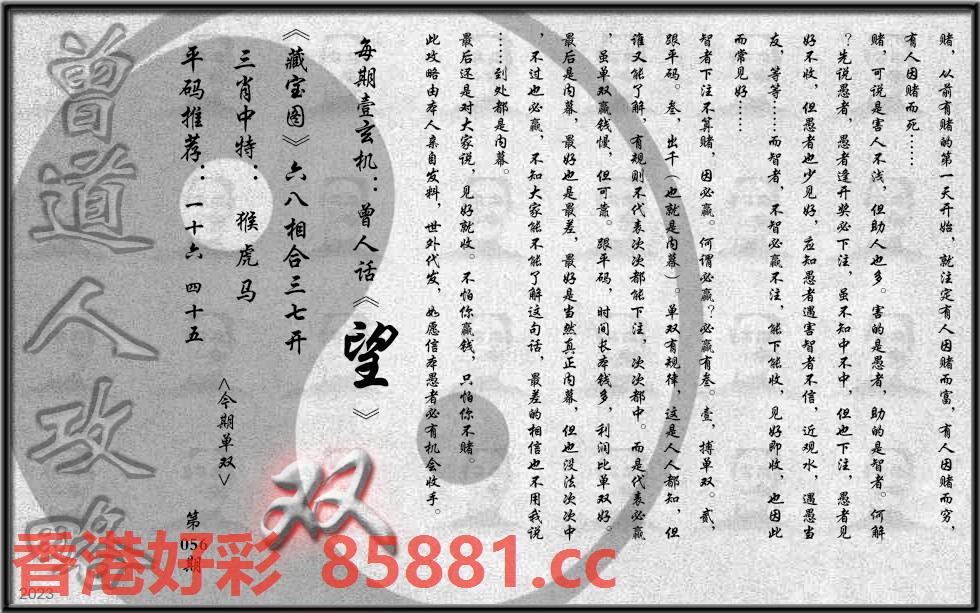 赌，从前有赌的第一天开始，就注定有人因赌而富，有人因赌而穷，
有人因赌而死……
赌，可说是害人不浅，但助人也多。害的是愚者，助的是智者。何解
？先说愚者，愚者逢开奖必下注，虽不知中不中，但也下注，愚者见
好不收，但愚者也少见好，应知愚者遇害智者不信，近观水，遇愚当
友，等等……而智者，不智必赢不注，能下能收，见好即收，也因此
而常见好……
智者下注不算赌，因必赢。何谓必赢？必赢有叁。壹，搏单双。贰，
跟平码。叁，出千（也就是内幕）。单双有规律，这是人人都知，但
谁又能了解，有规则不代表次次都能下注，次次都中。而是代表必赢
，虽单双赢钱慢，但可靠。跟平码，时间长本钱多，利润比单双好。
最后是内幕，最好也是最差，最好是当然真正内幕，但也没法次次中
，不过也必赢，不知大家能不能了解这句话，最差的相信也不用我说
……到处都是内幕。
最后还是对大家说，见好就收。不怕你赢钱，只怕你不赌。
此攻略由本人亲自发料，世外代发，如愿信本愚者必有机会收手。
每期壹玄机：曾人话《望》
《藏宝图》六八相合三七开
三肖中特： 猴虎马
平码推荐：一十六 四十五
<今期单双>
双
第056期
曾道人攻略
香港好彩 85881.cc
2023